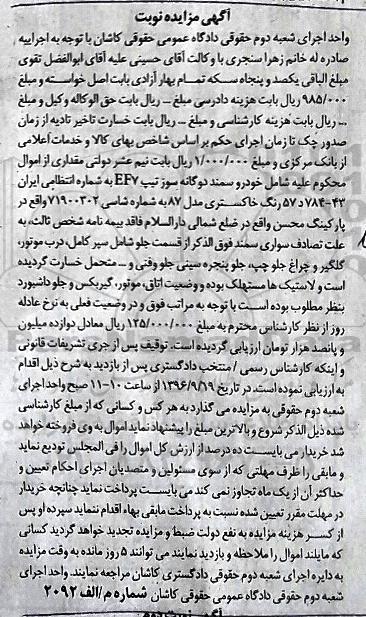 آگهی مزایده نوبت
واحد اجرای شعبه دوم حقوقی دادگاه عمومی حقوقی کاشان با توجه به اجراییه
صادره له خانم زهرا سنجری با وکالت آقای حسینی علیه آقای ابوالفضل تقوی
مبلغ الباقی یکصد و پنجاه سکه تمام بهار آزادی بابت اصل خواسته و مبلغ
۹۸۵/۰۰۰ ریال بابت هزینه دادرسی مبلغ ... ریال بابت حق الوکاله وکیل و مبلغ
... ریال بابت هزینه کارشناسی و مبلغ ... ریال بابت خسارت تاخیر تادیه از زمان
صدور چک تا زمان اجرای حکم بر اساس شاخص بهای کالا و خدمات اعلامی
از بانک مرکزی و مبلغ ۱/۰۰۰/۰۰۰ ریال بابت نیم عشر دولتی مقداری از اموال
محکوم علیه شامل خودرو سمند دوگانه سوز تیپ EF۷ به شماره انتظامی ایران
۴۳-۷۸۴ د ۵۷ رنگ خاکستری مدل ۸۷ به شماره شاسی ۷۱۹۰۰۳۰۲ واقع در
پارکینگ محسن واقع در ضلع شمالی دارالسلام فاقد بیمه نامه شخص ثالث، به
علت تصادف سواری سمند فوق الذکر از قسمت جلو شامل سپر کامل، درب موتور،
گلگیر و چراغ جلو چپ، جلو پنجره سینی جلو وفنی و ... متحمل خسارت گردیده
است و لاستیک ها مستهلک بوده و وضعیت اتاق، موتور، گیربکس و جلو داشبورد
بنظر مطلوب بوده است با توجه به مراتب فوق و در وضعیت فعلی به نرخ عادله
روز از نظر کارشناس محترم به مبلغ ۱۲۵/۰۰۰/۰۰۰ ریال معادل دوازده میلیون
و پانصد هزار تومان ارزیابی گردیده است. توقیف پس از جری تشریفات قانونی
و اینکه کارشناس رسمی / منتخب دادگستری پس از بازدید به شرح ذیل اقدام
به ارزیابی نموده است. در تاریخ ۱۳۹۶/۹/۱۹ از ساعت ۱۰-۱۱ صبح واحد اجرای
شعبه دوم حقوقی به مزایده می گذارد به هر کس و کسانی که از مبلغ کارشناسی
شده ذیل الذکر شروع و بالاترین مبلغ را پیشنهاد نماید اموال به وی فروخته خواهد
شد خریدار می بایست ده درصد از ارزش کل اموال را فی المجلس تودیع نماید
و مابقی را ظرف مهلتی که از سوی مسئولین و متصدیان اجرای احکام تعیین و
حداکثر آن از یک ماه تجاوز نمی کند می بایست پرداخت نماید چنانچه خریدار
در مهلت مقرر تعیین شده نسبت به پرداخت مابقی بهاء اقدام ننماید سپرده او پس
از کسر هزینه مزایده به نفع دولت ضبط و مزایده تجدید خواهد گردید کسانی
که مایلند اموال را ملاحظه و بازدید نمایند می توانند ۵ روز مانده به وقت مزایده
به دایره اجرای شعبه دوم حقوقی دادگستری کاشان مراجعه نمایند. واحد اجرای
شعبه دوم حقوقی دادگاه عمومی حقوقی کاشان شماره م/الف ۲۰۹۲